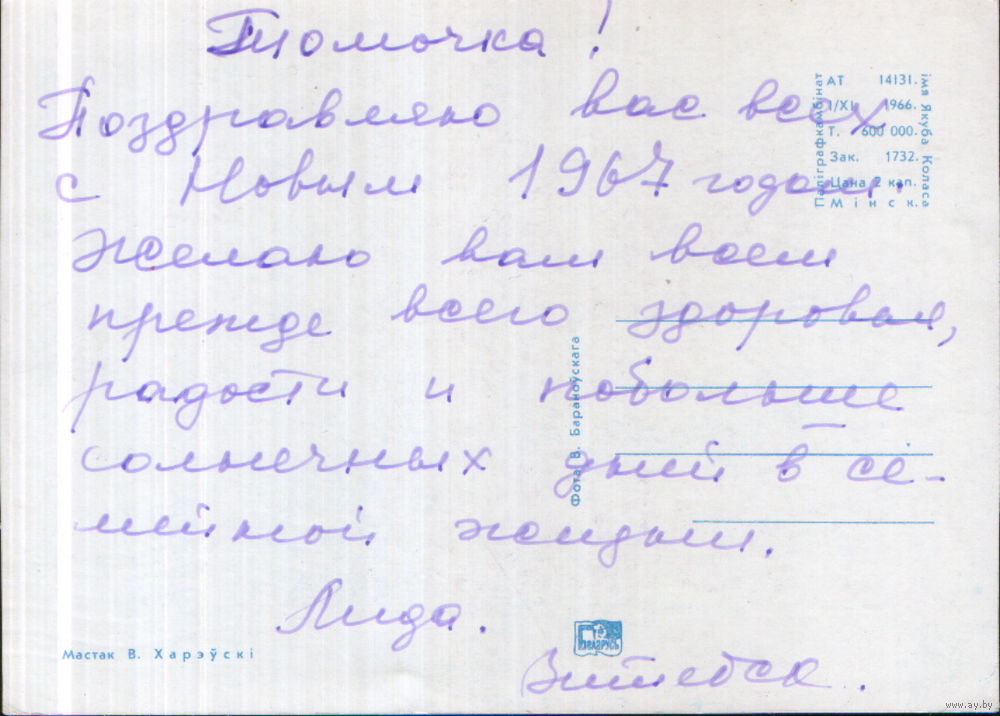 Томочка!
Поздравляю вас всех
с Новым 1967 годом.
Желаю вам всем
прежде всего здоровья,
радости и побольше
солнечных дней в се-
мейной жизни.
Лида.
Витебск.
Мастак В. Харэўскі
Фота В. Бараноўскага
БЕЛАРУСЬ
Паліграфкамбінат
АТ 14131.
I/XI 1966.
Т. 600 000.
Зак. 1732.
Цана 2 кап.
Мінск.
імя Якуба Коласа
www.ay.by